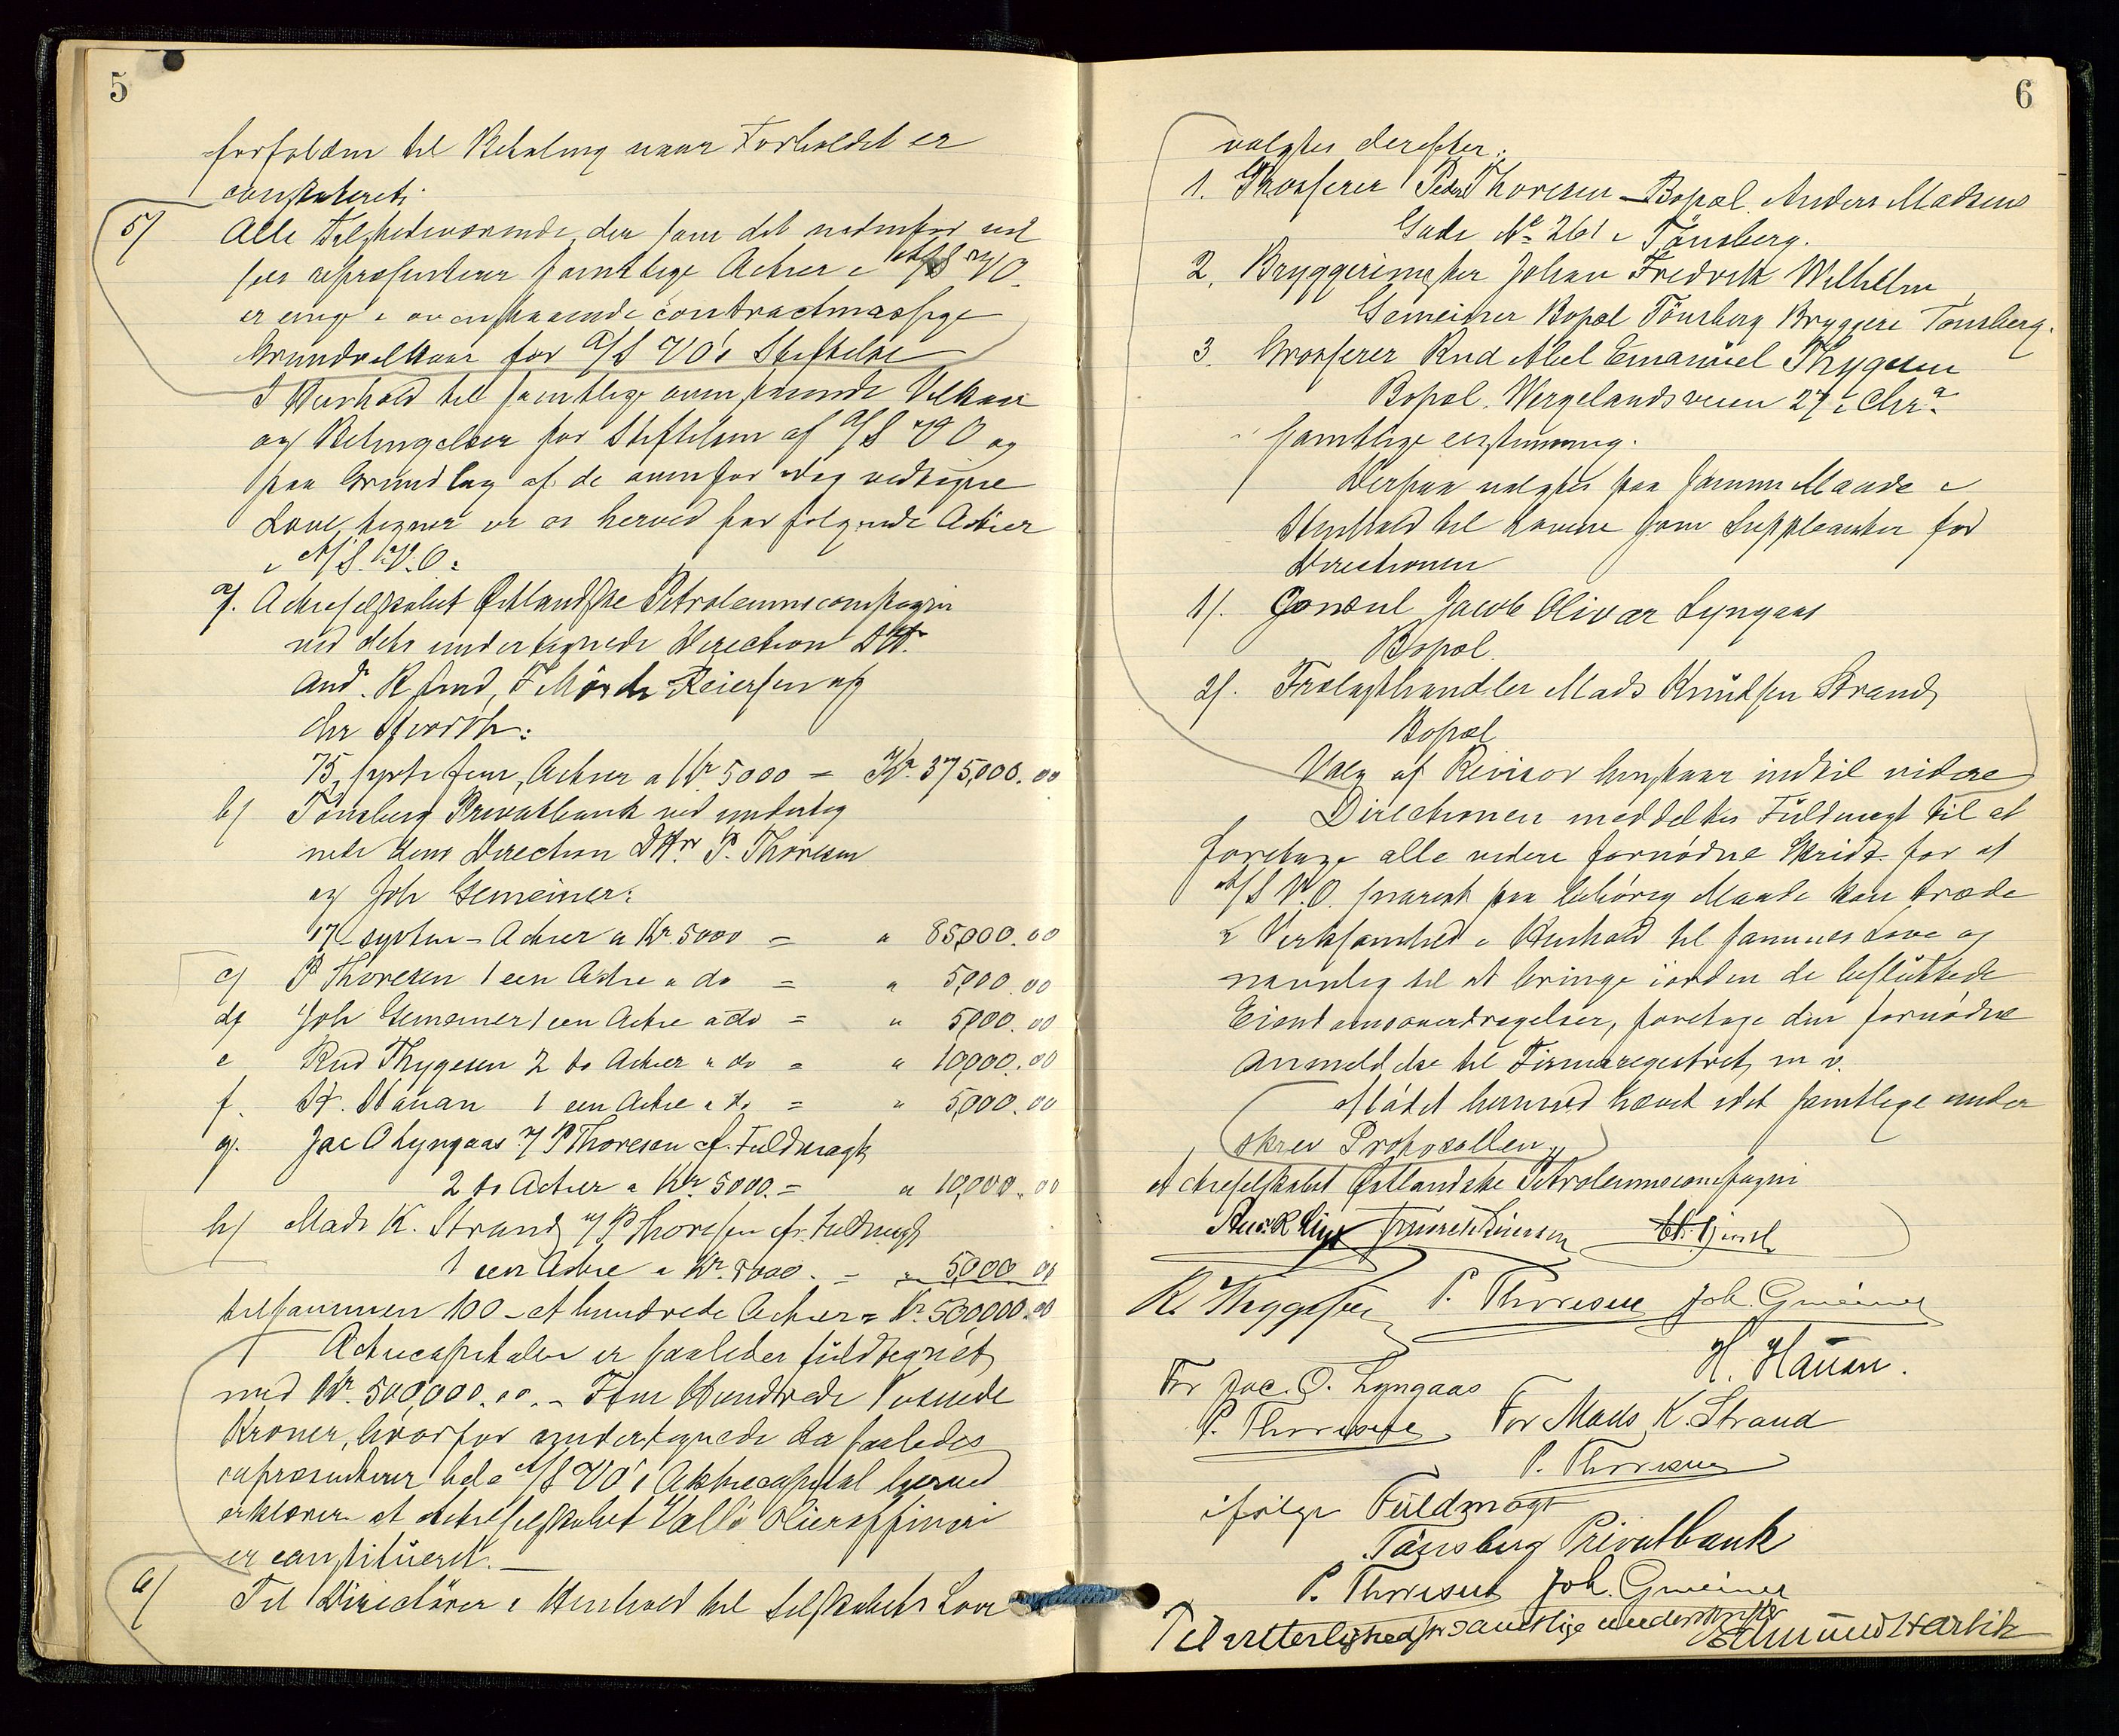 5
forfalden til Betaling naar Forholdet er
constateret.
5/ Alle Tilstedeværende, der som det nedenfor vil
sees repræsenterer samtlige Actier i A/S VO.
er enige i ovenstaaende contractmæssige
Grundvilkaar for A/S VO's Stiftelse
I Henhold til samtlige ovenstaaende Vilkaar
og Betingelser for Stiftelsen af A/S VO og
paa Grundlag af de ovenfor idag vedtagne
Love, tegner vi os herved for følgende Actier
i A/S. V.O:
a/. Actieselskabet Østlandske Petroleumscompagni
ved dets undertegnede Direction DHr.
And. R. Lind, F Mørch Reiersen og
Chr
75, sytti fem, Actier a Kr 5000 = Kr. 375,000.00
b/ Tønsberg Privatbank ved underteg
nede dens Direction DHrr P. Thoresen
og Joh Gmeiner:
17 - sytten - Actier a Kr. 5000 = " 85,000.00
c/ P Thoresen 1 een Actie a do = " 5,000.00
d/ Joh Gmeiner 1 een Actie a do = " 5,000.00
e Rud Thygesen 2 to Actier a do = " 10,000.00
f. H. Hauan 1 een Actie a do = " 5,000.00
g. Jac O Lyngaas v/ P Thoresen cf. Fuldmagt
2 to Actier a Kr. 5000. = " 10,000.00
h/ Mads K. Strand v/ P Thoresen cfr. Fuldmagt
1 een Actie a Kr. 5000. = " 5,000 00
tilsammen 100 - et hundrede Actier = Kr. 500000.00
Actiecapitalen er saaledes fuldtegnet
med Kr. 500,000.00. - Fem Hundrede Tusinde
Kroner, hvorfor undertegnede der saaledes
repræsenterer hele A/S VO's Aktiecapital herved
erklærer at Actieselskabet Vallø Olieraffineri
er constitueret. -
6/ Til Directører i Henhold til Selskabets Love
6
valgtes derefter:
1. Grosserer Peder Thoresen - Bopæl. Anders Madsens
Gade No 261 i Tönsberg.
2. Bryggerimester Johan Fredrik Wilhelm
Gemeiner Bopæl Tönsberg Bryggeri Tønsberg.
3. Grosserer Rud Abel Emanuel Thygesen
Bopæl. Wergelandsveien 27 i Chra.
samtlige enstemmig.
Derpaa valgtes paa samme Maade i
Henhold til Lovene som Suppleanter for
Directionen
1/. Consul Jacob Olivar Lyngaas
Bopæl.
2/. Trælasthandler Mads Knudsen Strand
Bopæl
Valg af Revisor henstaar indtil videre
Directionen meddeltes Fuldmagt til at
foretage alle videre fornødne Skridt for at
A/S V.O. snarest paa behørig Maade kan træde
i Virksomhed i Henhold til sammes Love og
navnlig til at bringe iorden de besluttede
Eiendomsoverdragelser, foretage den fornødne
Anmeldelse til Firmaregistret m v.
Mødet hermed hævet idet samtlige under
skrev Protocollen,,
Actieselskabet Østlandske Petroleumscompagni
And. R Lind
Rd Thygesen P. Thoresen Joh. Gmeiner
H. Hauan.
For Jac. O. Lyngaas
P. Thoresen For Mads K. Strand
P. Thoresen
ifølge Fuldmagt
Tönsberg Privatbank
P. Thoresen Joh. Gmeiner
Til vitterlighed for samtlige underskrifter